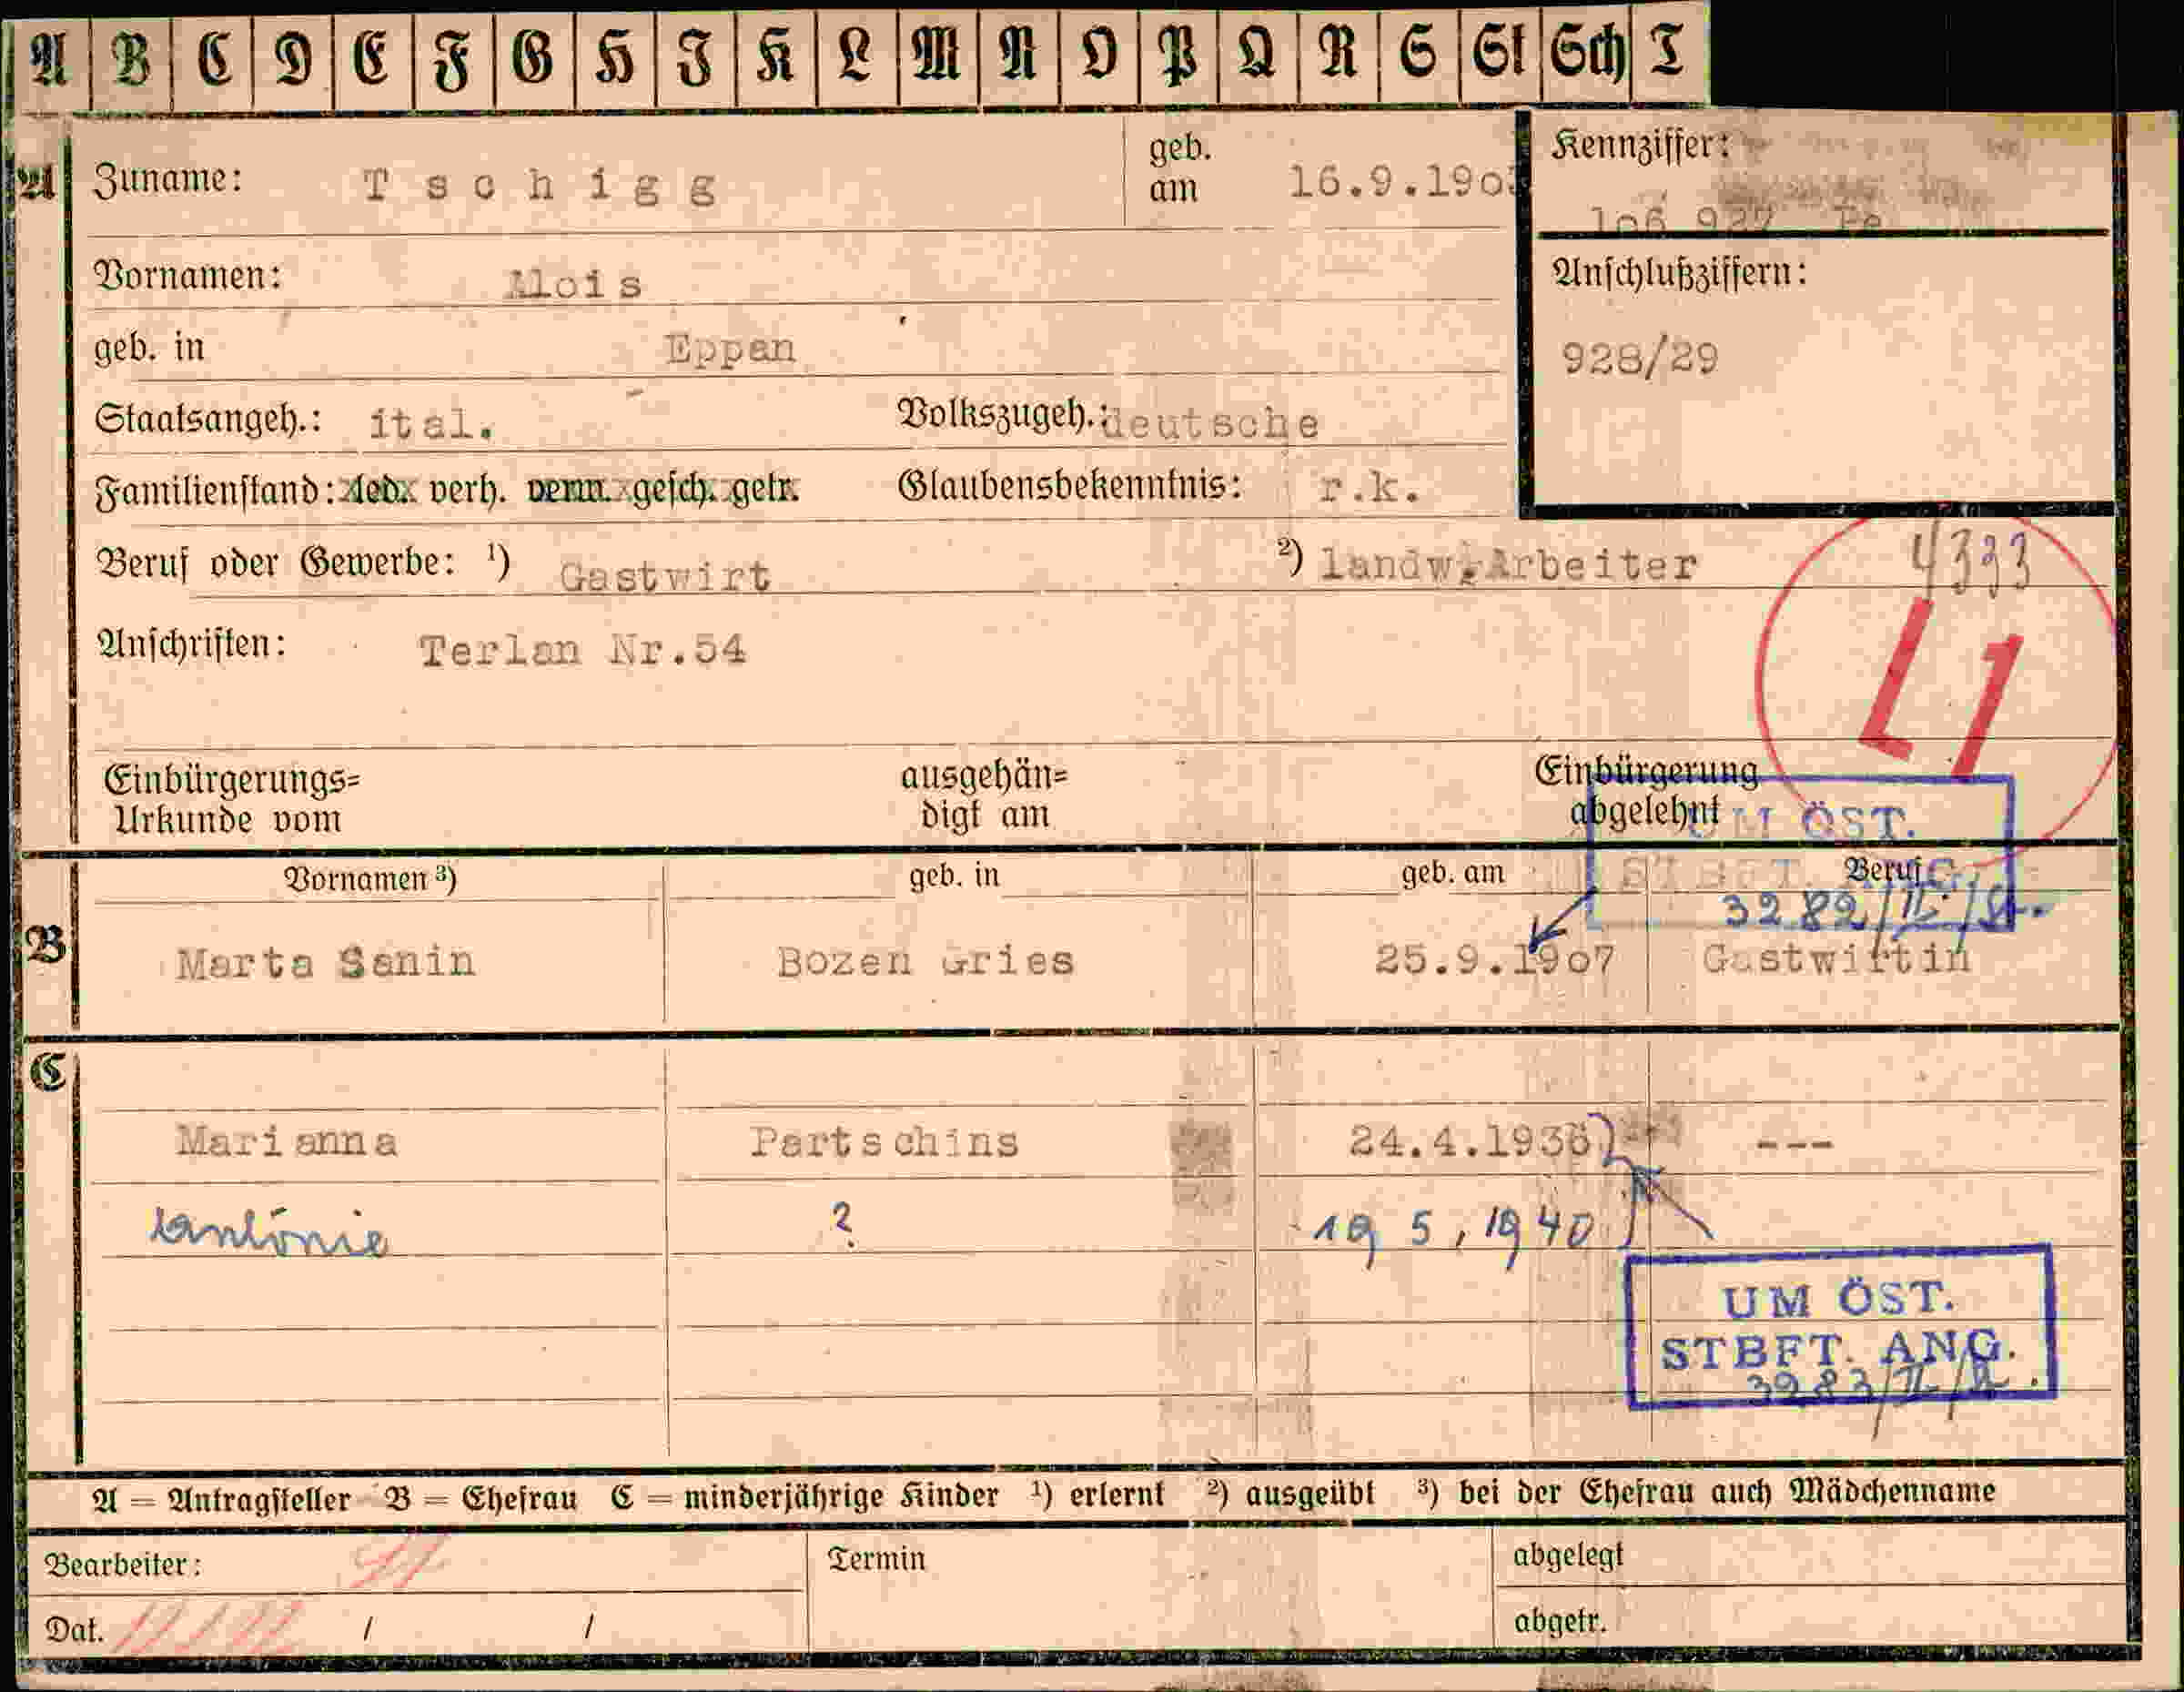 A B C D E F G H I K L M N O P Q R S St Sch T
A Zuname: Tschigg geb. am 16.9.190
Kennziffer:
1o6 927 Fe
Vornamen: Alois
Anschlußziffern:
928/29
geb. in Eppan
Staatsangeh.: ital. Volkszugeh.: deutsche
Familienstand: led. verh. verw. gesch. getr. Glaubensbekenntnis: r.k.
Beruf oder Gewerbe: 1) Gastwirt 2) landw.Arbeiter
4333
Anschriften: Terlan Nr.54
L1
Einbürgerungs= ausgehän= Einbürgerung
Urkunde vom digt am abgelehnt
UM ÖST.
STBFT.
Vornamen 3) geb. in geb. am Beruf
3282/II/
B Marta Sanin Bozen Gries 25.9.19o7 Gastwirtin
C
Marianna Partschins 24.4.1936 ---
Antonie ? 19 5, 1940
UM ÖST.
STBFT. ANG.
3283/II/
A = Antragsteller B = Ehefrau C = minderjährige Kinder 1) erlernt 2) ausgeübt 3) bei der Ehefrau auch Mädchenname
Bearbeiter: Termin abgelegt
Dat. / / abgetr.